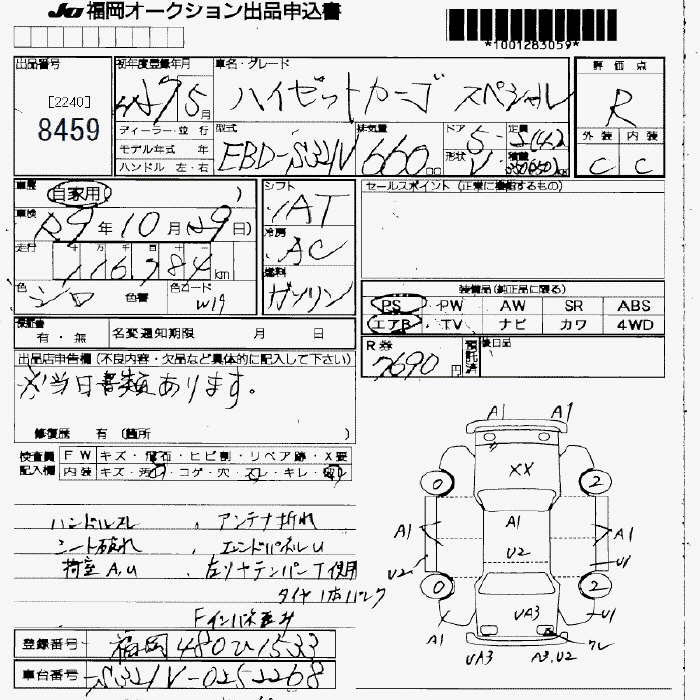 JU 福岡オークション出品申込書
*1001283059*
出品番号
[2240]
8459
初年度登録年月
H27 5月
車名・グレード
ハイゼットカーゴ スペシャル
評価点
R
外装 内装
C C
ディーラー・並行
モデル年式 年
ハンドル 左・右
型式
EBD-S321V
排気量
660 cc
ドア
5
形状
V
定員
積載
車歴
自家用 )
車検
R9年10月29日)
走行
十 万 千 百 十 一
116,784 km
色
シロ
色替
色コード
W19
シフト
IAT
冷房
AC
燃料
ガソリン
セールスポイント (正常に機能するもの)
装備品(純正品に限る)
PS PW AW SR ABS
エアB TV ナビ カワ 4WD
保証書
有・無
名変通知期限 月 日
R券
7690円
預託済
後日品
出品店申告欄 (不良内容・欠品など具体的に記入して下さい)
※当日書類あります。
修復歴 有 (箇所 )
検査員記入欄
FW キズ・飛石・ヒビ割・リペア跡・X要
内装 キズ・汚・コゲ・穴・スレ・キレ・破
ハンドルスレ 、アンテナ折れ
シート破れ 、エンドパネルU
荷室A,U 、左リヤテンパーT使用
タイヤ1本パンク
Fインパネ歪み
登録番号 福岡480ひ1533
車台番号 S321V-0252268
A1 A1
XX
0 2
A1
U2
A1 A1
U2 U1
0 2
UA3
A1 U1
UA3 A3,U2